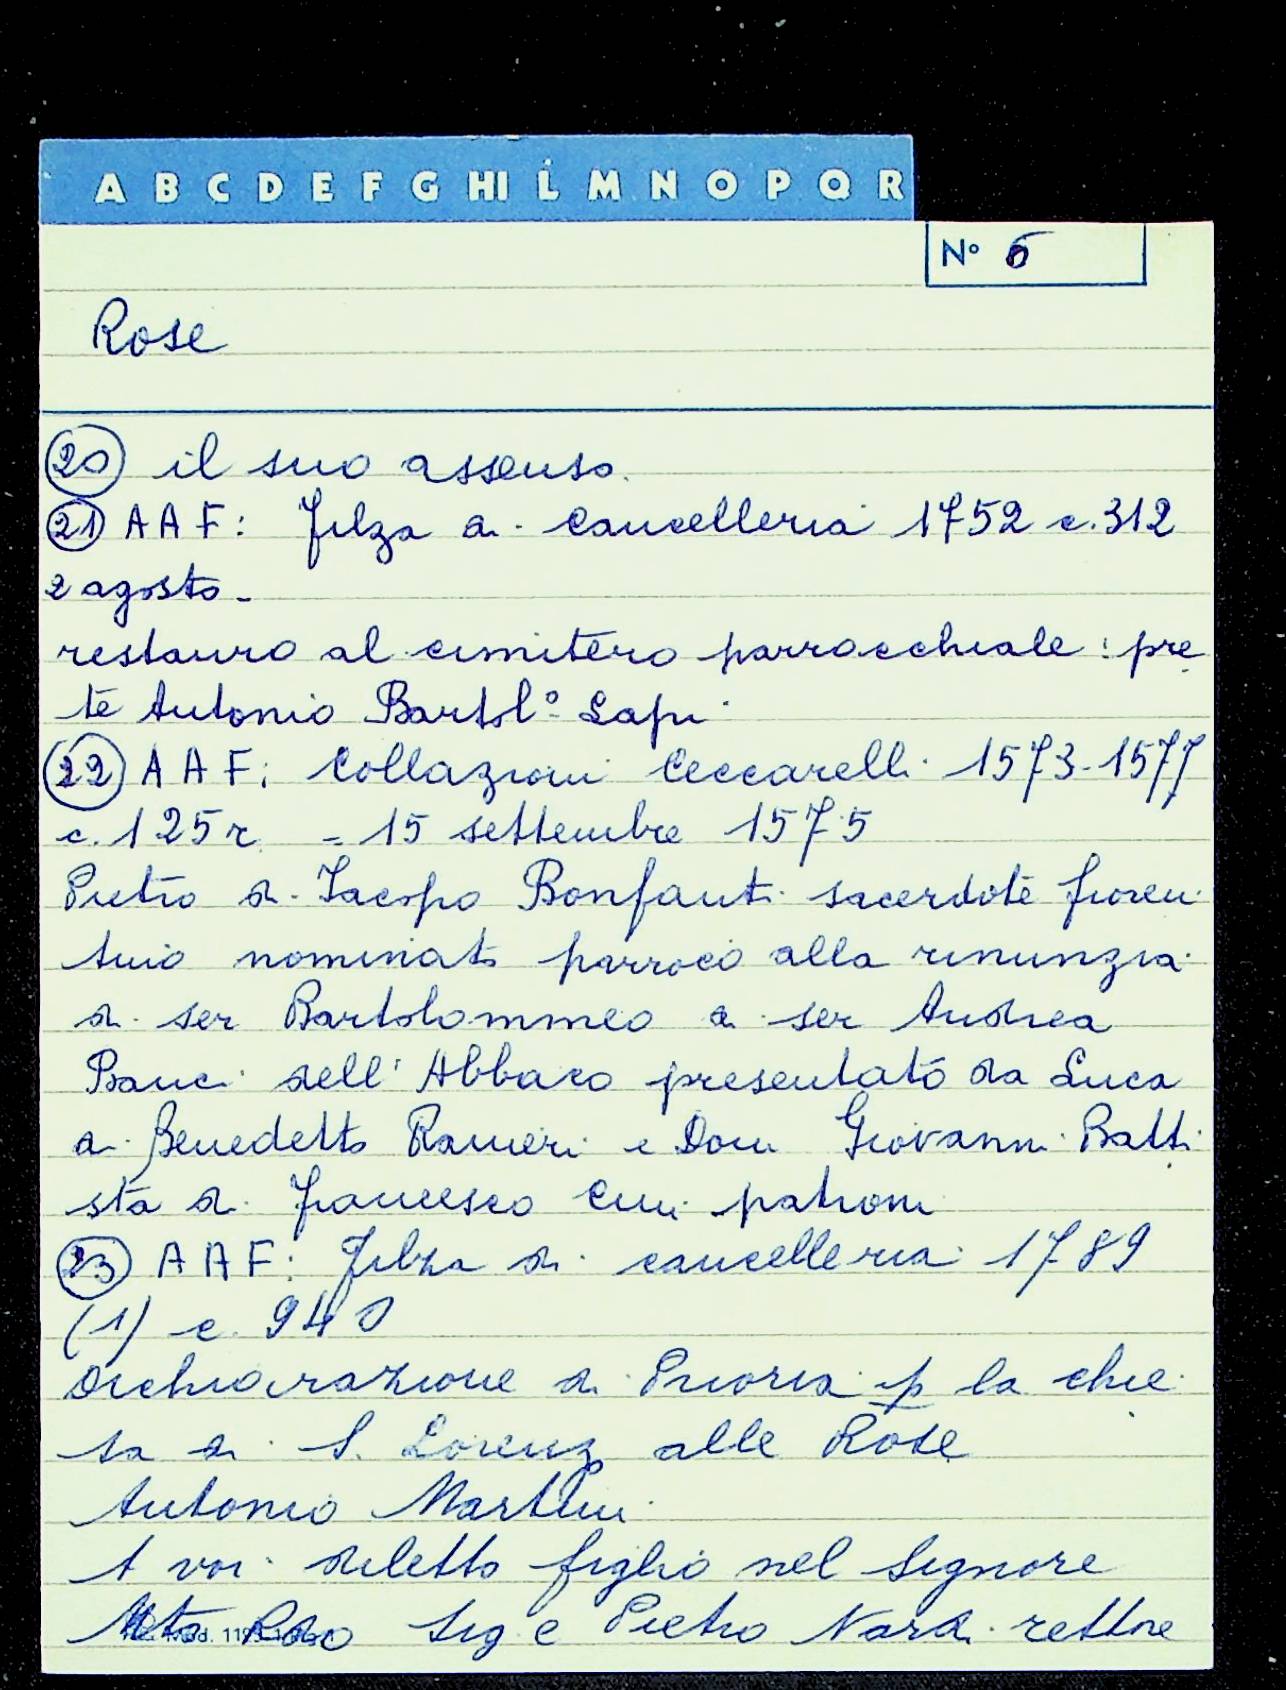 A B C D E F G HI L M N O P Q R
N° 6
Rose
20 il suo assenso.
21 AAF: Filza di cancelleria 1752 c. 312
2 agosto -
restauro al cimitero parrocchiale: pre
te Antonio Bartol° Lapi
22 AAF: Collazioni Ceccarelli 1573-1577
c. 125 r = 15 settembre 1575
Pietro di Jacopo Bonfanti sacerdote fioren
tino nominato parroco alla rinunzia
di ser Bartolommeo di ser Andrea
Banci dell'Abbaco presentato da Luca
di Benedetto Ranieri e Dom Giovanni Batti
sta di Francesco Cini patroni
23 AAF: Filza di cancelleria 1789
(1) c. 940
Dichiarazione di Prioria p la chie
sa di S. Lorenzo alle Rose
Antonio Martini
A voi diletto figlio nel Signore
Mto Rdo Sig e Pietro Nardi rettore